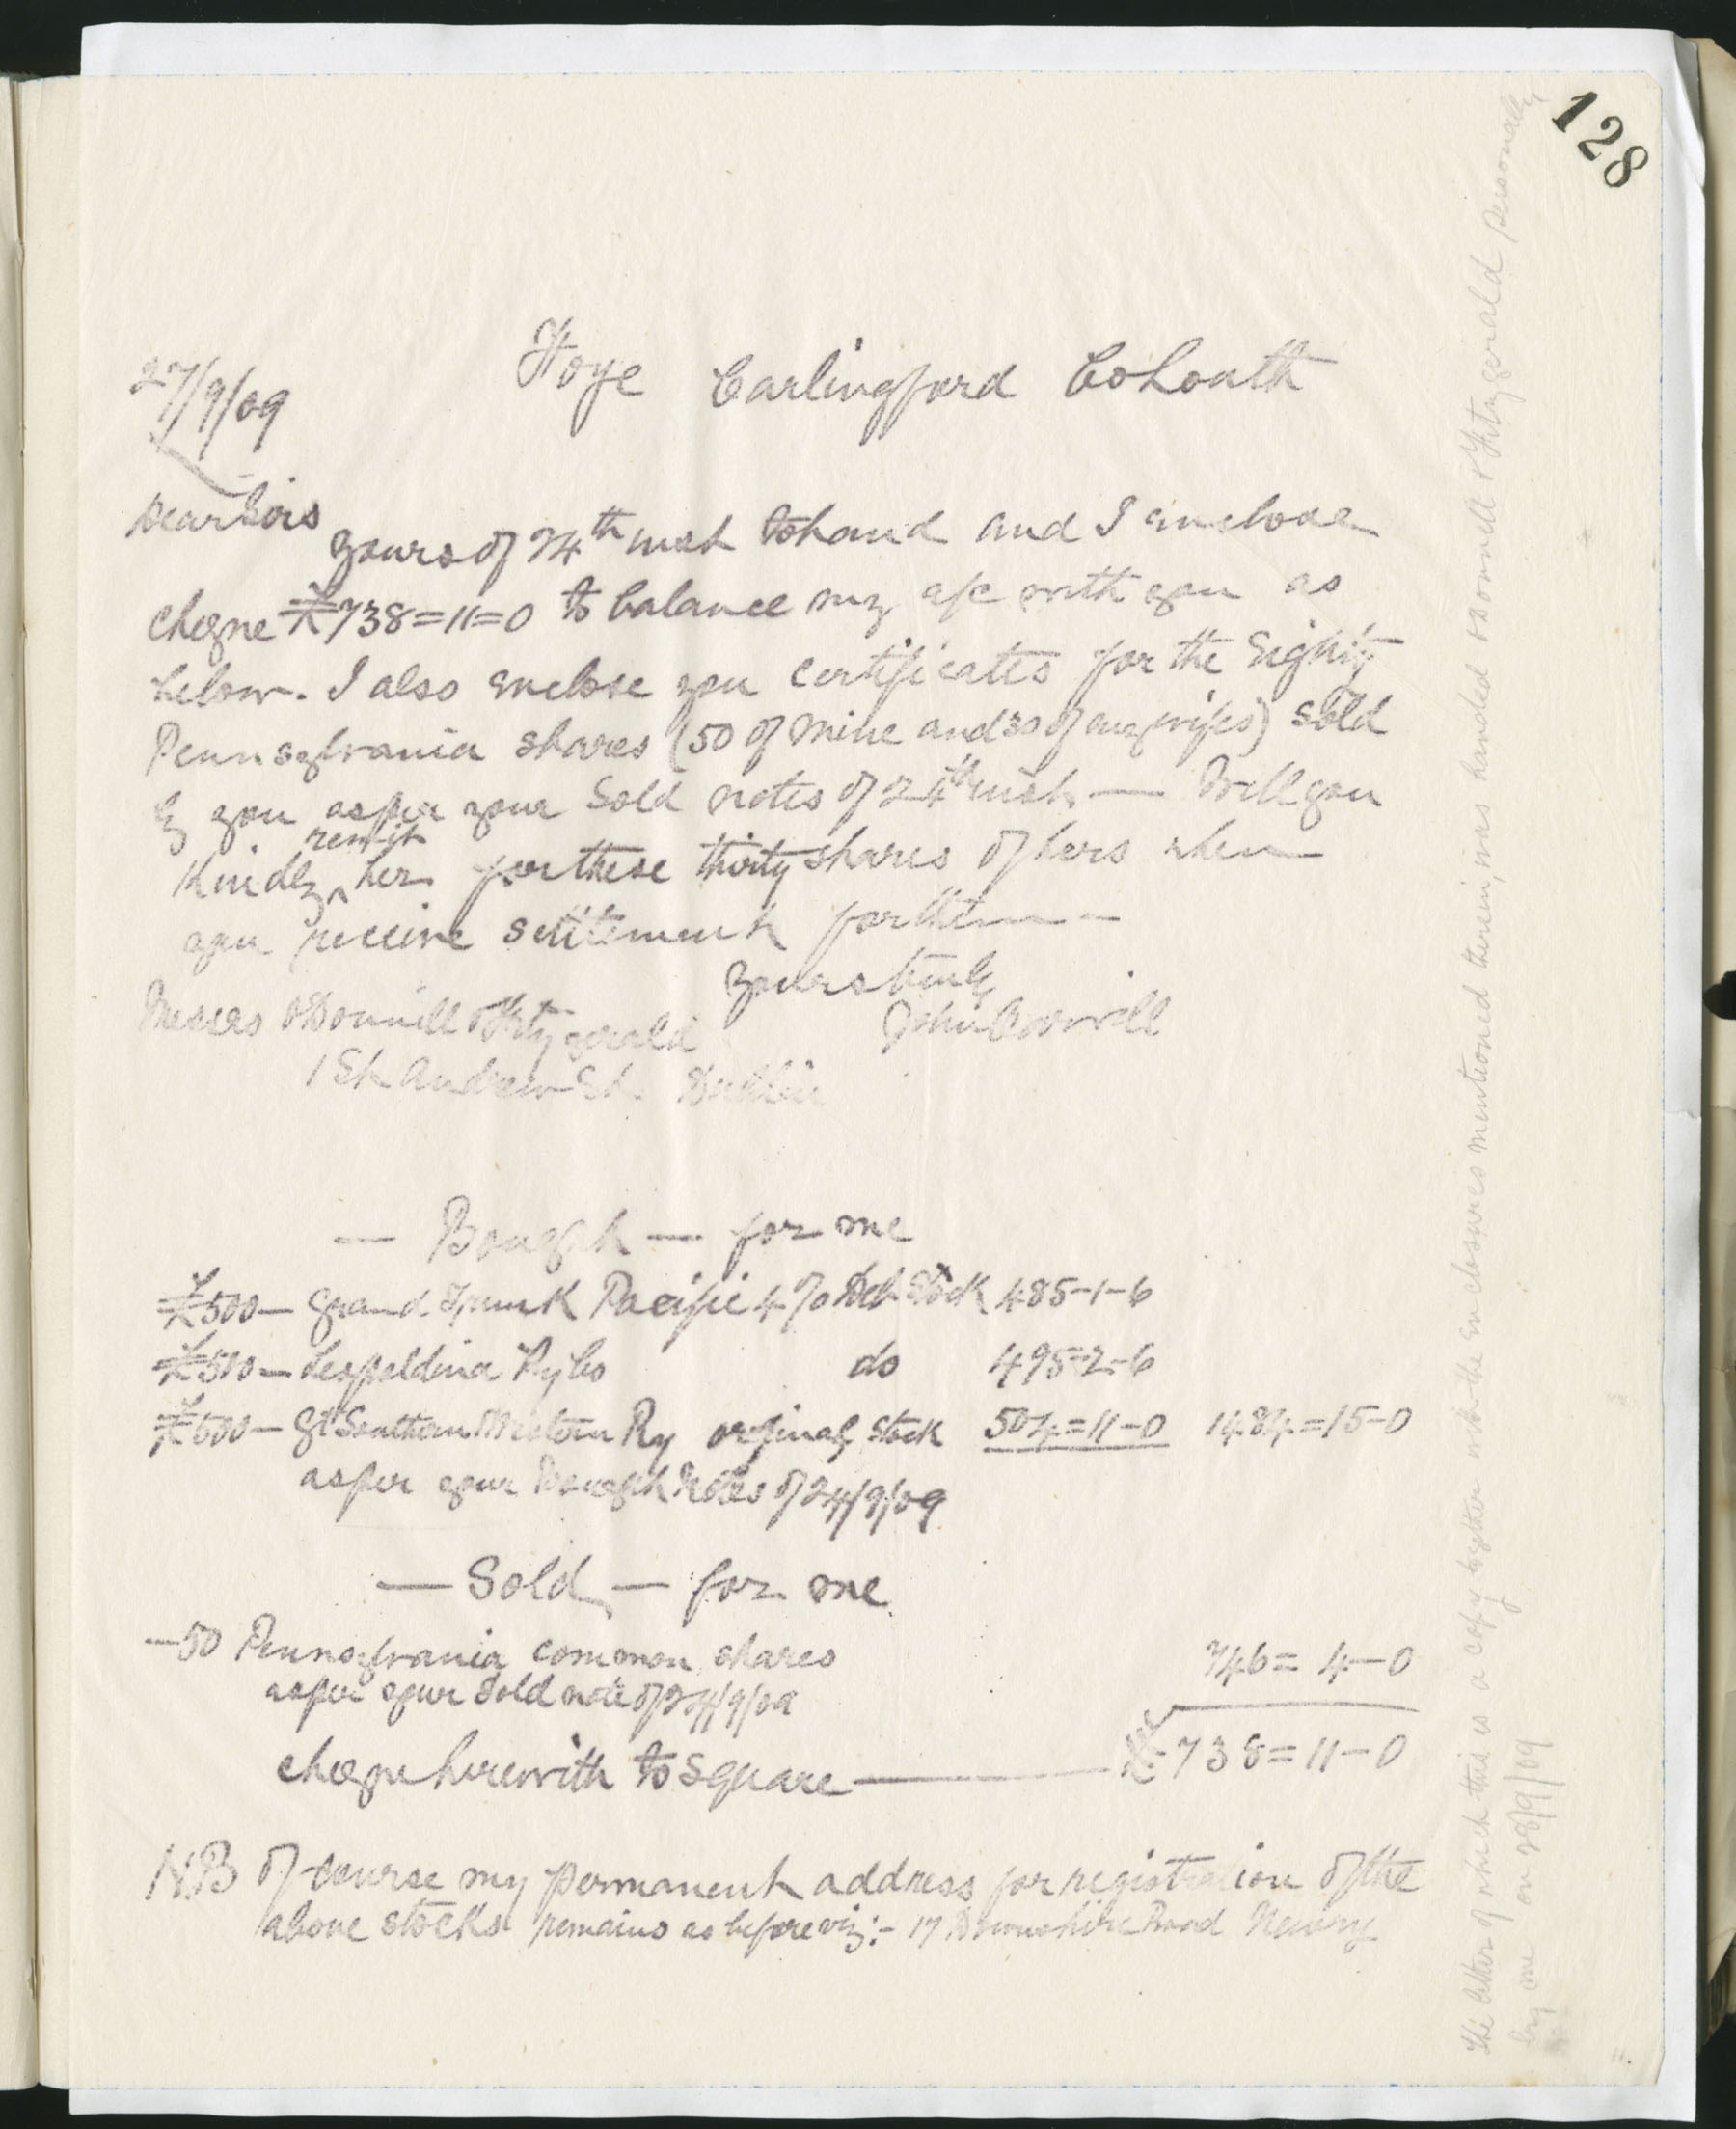 128
27/9/09
Hoye Carlingford Co Louth
Dear Sirs
yours of 24th inst to hand and I enclose
cheque £738=11=0 to balance my a/c with you as
below. I also enclose you certificates for the Eighty
Pennsylvania shares (50 of mine and 30 of my wifes) sold
by you as per your Sold notes of 24th inst — Will you
kindly remit her for these thirty shares of hers when
you receive settlement for them —
yours truly
John
Messrs O'Donnell & Fitzgerald
1 St Andrew St. Dublin
— Bought — for me
£500 — Grand Trunk Pacific 4% Deb Stock 485-1-6
£500 — Leopoldina Ry Co do 495-2-6
£500 — Gt Southern & Western Ry original stock 504=11-0 1484=15-0
as per your Bought Notes of 24/9/09
— Sold — for me
— 50 Pennsylvania common shares 746=4-0
as per your Sold note of 24/9/09
cheque herewith to square — £738=11-0
N.B Of course my permanent address for registration of the
above stocks remains as before viz:- 17 Downshire Road Newry
The letter of which this is a copy together with the enclosures mentioned therein, was handed to O'Donnell & Fitzgerald personally
by me on 28/9/09